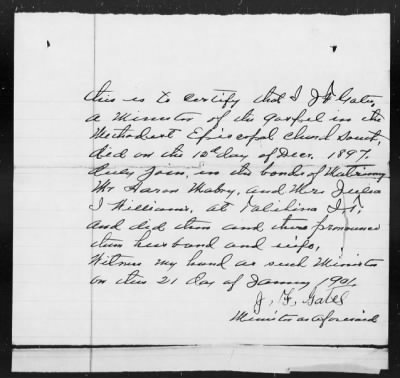 this is to certify that I J F Gates,
a Minister of the Gospel in the
Methodist Episcopal Church South,
did on the 10th day of Decr. 1897
duly join, in the bonds of Matrimony
Mr Aaron and Mrs Julia
J Williams, at Talihina I T,
and did then and there pronounce
them husband and wife,
Witness my hand as such Minister
on this 21 day of Janury, 1901,
J, F, Gates
Minister as aforesaid